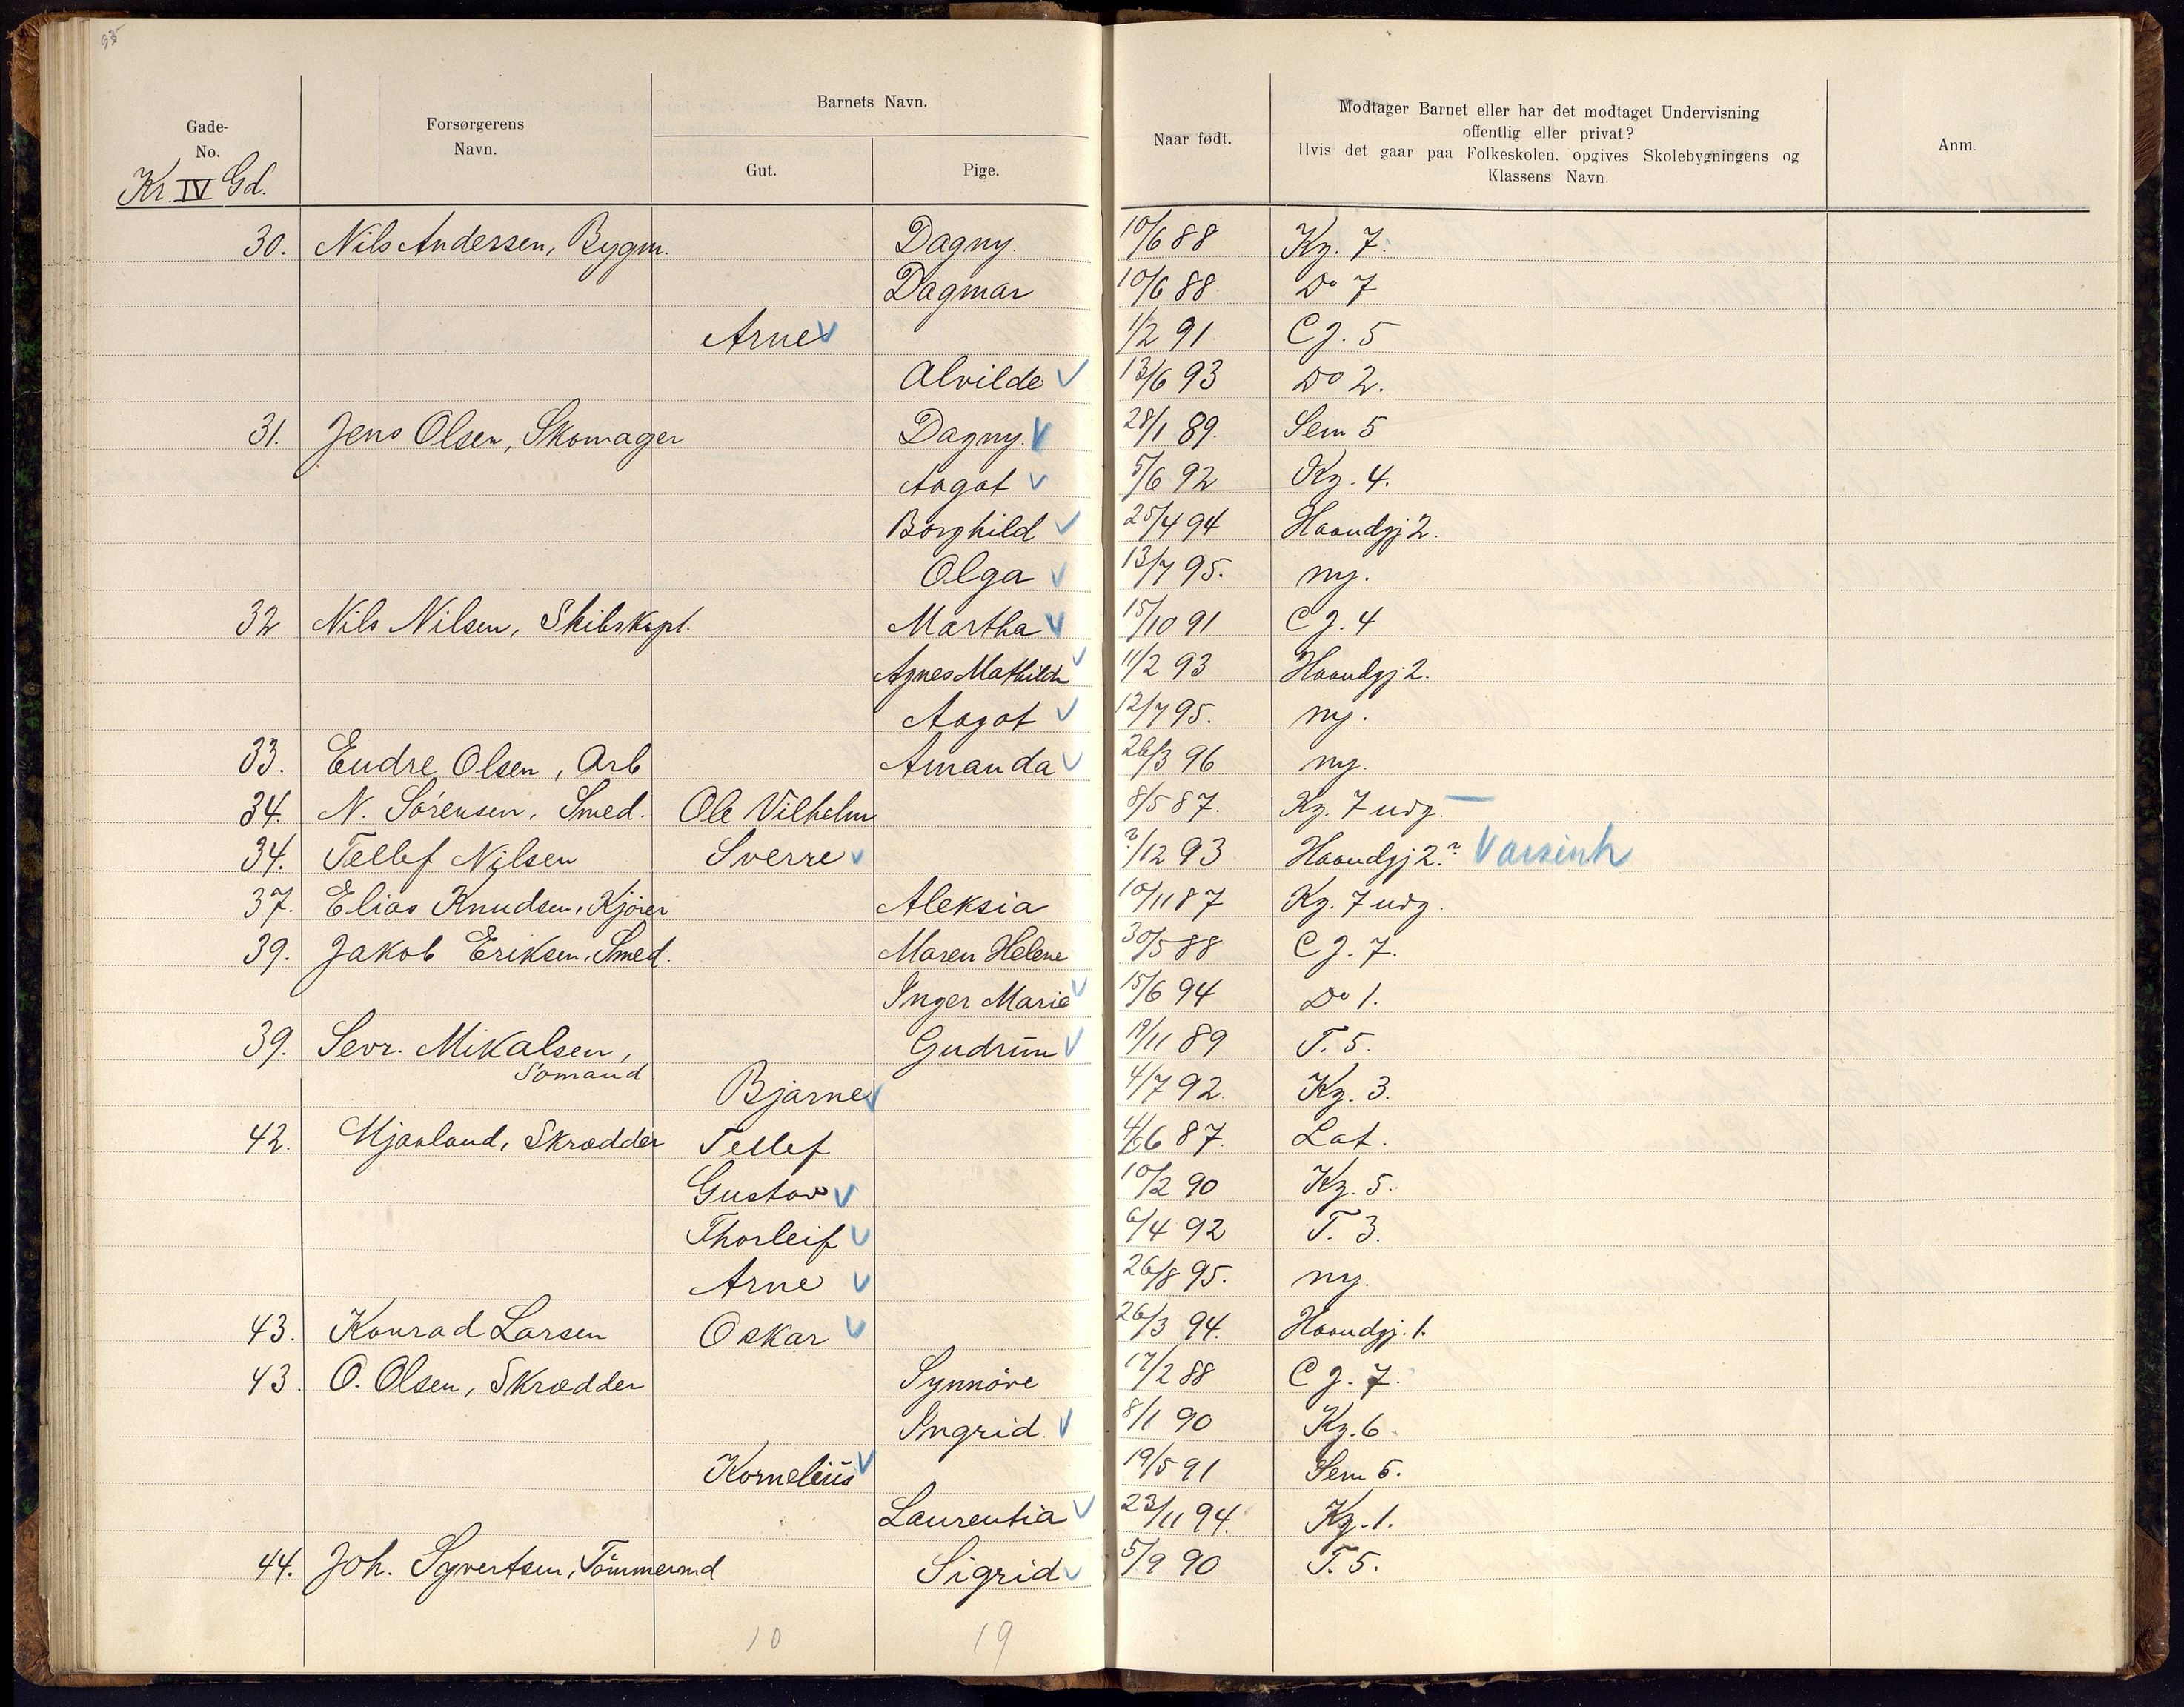 95
Gade-
No.
Kr. IV Gd.
Forsørgerens
Navn.
Barnets Navn.
Gut.
Pige.
Naar født.
Modtager Barnet eller har det modtaget Undervisning
offentlig eller privat?
Hvis det gaar paa Folkeskolen, opgives Skolebygningens og
Klassens Navn.
Anm.
30. Nils Andersen, Bygm. Dagny. 10/6 88 Kg. 7.
Dagmar 10/6 88 Do 7
Arne V 1/2 91 C J. 5
Alvilde V 13/6 93 Do 2.
31. Jens Olsen, Skomager Dagny. V 28/1 89. Sem 5
Aagot V 5/6 92 Kg. 4.
Borghild V 25/4 94 Haandgj 2.
Olga V 13/7 95. ny.
32 Nils Nilsen, Skibskapt. Martha V 15/10 91 C J. 4
Agnes Mathilde V 11/2 93 Haandgj 2.
Aagot V 12/7 95. ny.
33. Endre Olsen, Arb Amanda V 26/3 96 ny.
34. N. Sörensen, Smed. Ole Vilhelm 8/5 87. Kg. 7 udg.
34. Tellef Nilsen Sverre V ?/12 93 Haandgj 2.?
37. Elias Knudsen, Kjörer Aleksia 10/11 87 Kg. 7 udg.
39. Jakob Eriksen, Smed. Maren Helene 30/5 88 C J. 7.
Inger Marie V 15/6 94 Do 1.
39. Sevr. Mikalsen, Gudrun V 19/11 89 T. 5.
Sömand.
Bjarne V 4/7 92. Kg. 3.
42. Mjaaland, Skrædder Tellef 4/6 87. Lat.
Gustav V 10/2 90 Kg. 5.
Thorleif V 6/4 92 T. 3.
Arne V 26/8 95. ny.
43. Konrad Larsen Oskar V 26/3 94. Haandgj. 1.
43. O. Olsen, Skrædder Synnöve 17/2 88 C J. 7.
Ingrid V 8/1 90 Kg. 6
Kornelius V 19/5 91 Sem 5.
Laurentia V 23/11 94. Kg. 1.
44. Joh. Syvertsen, Tömmermd Sigrid V 5/9 90 T. 5.
10 19